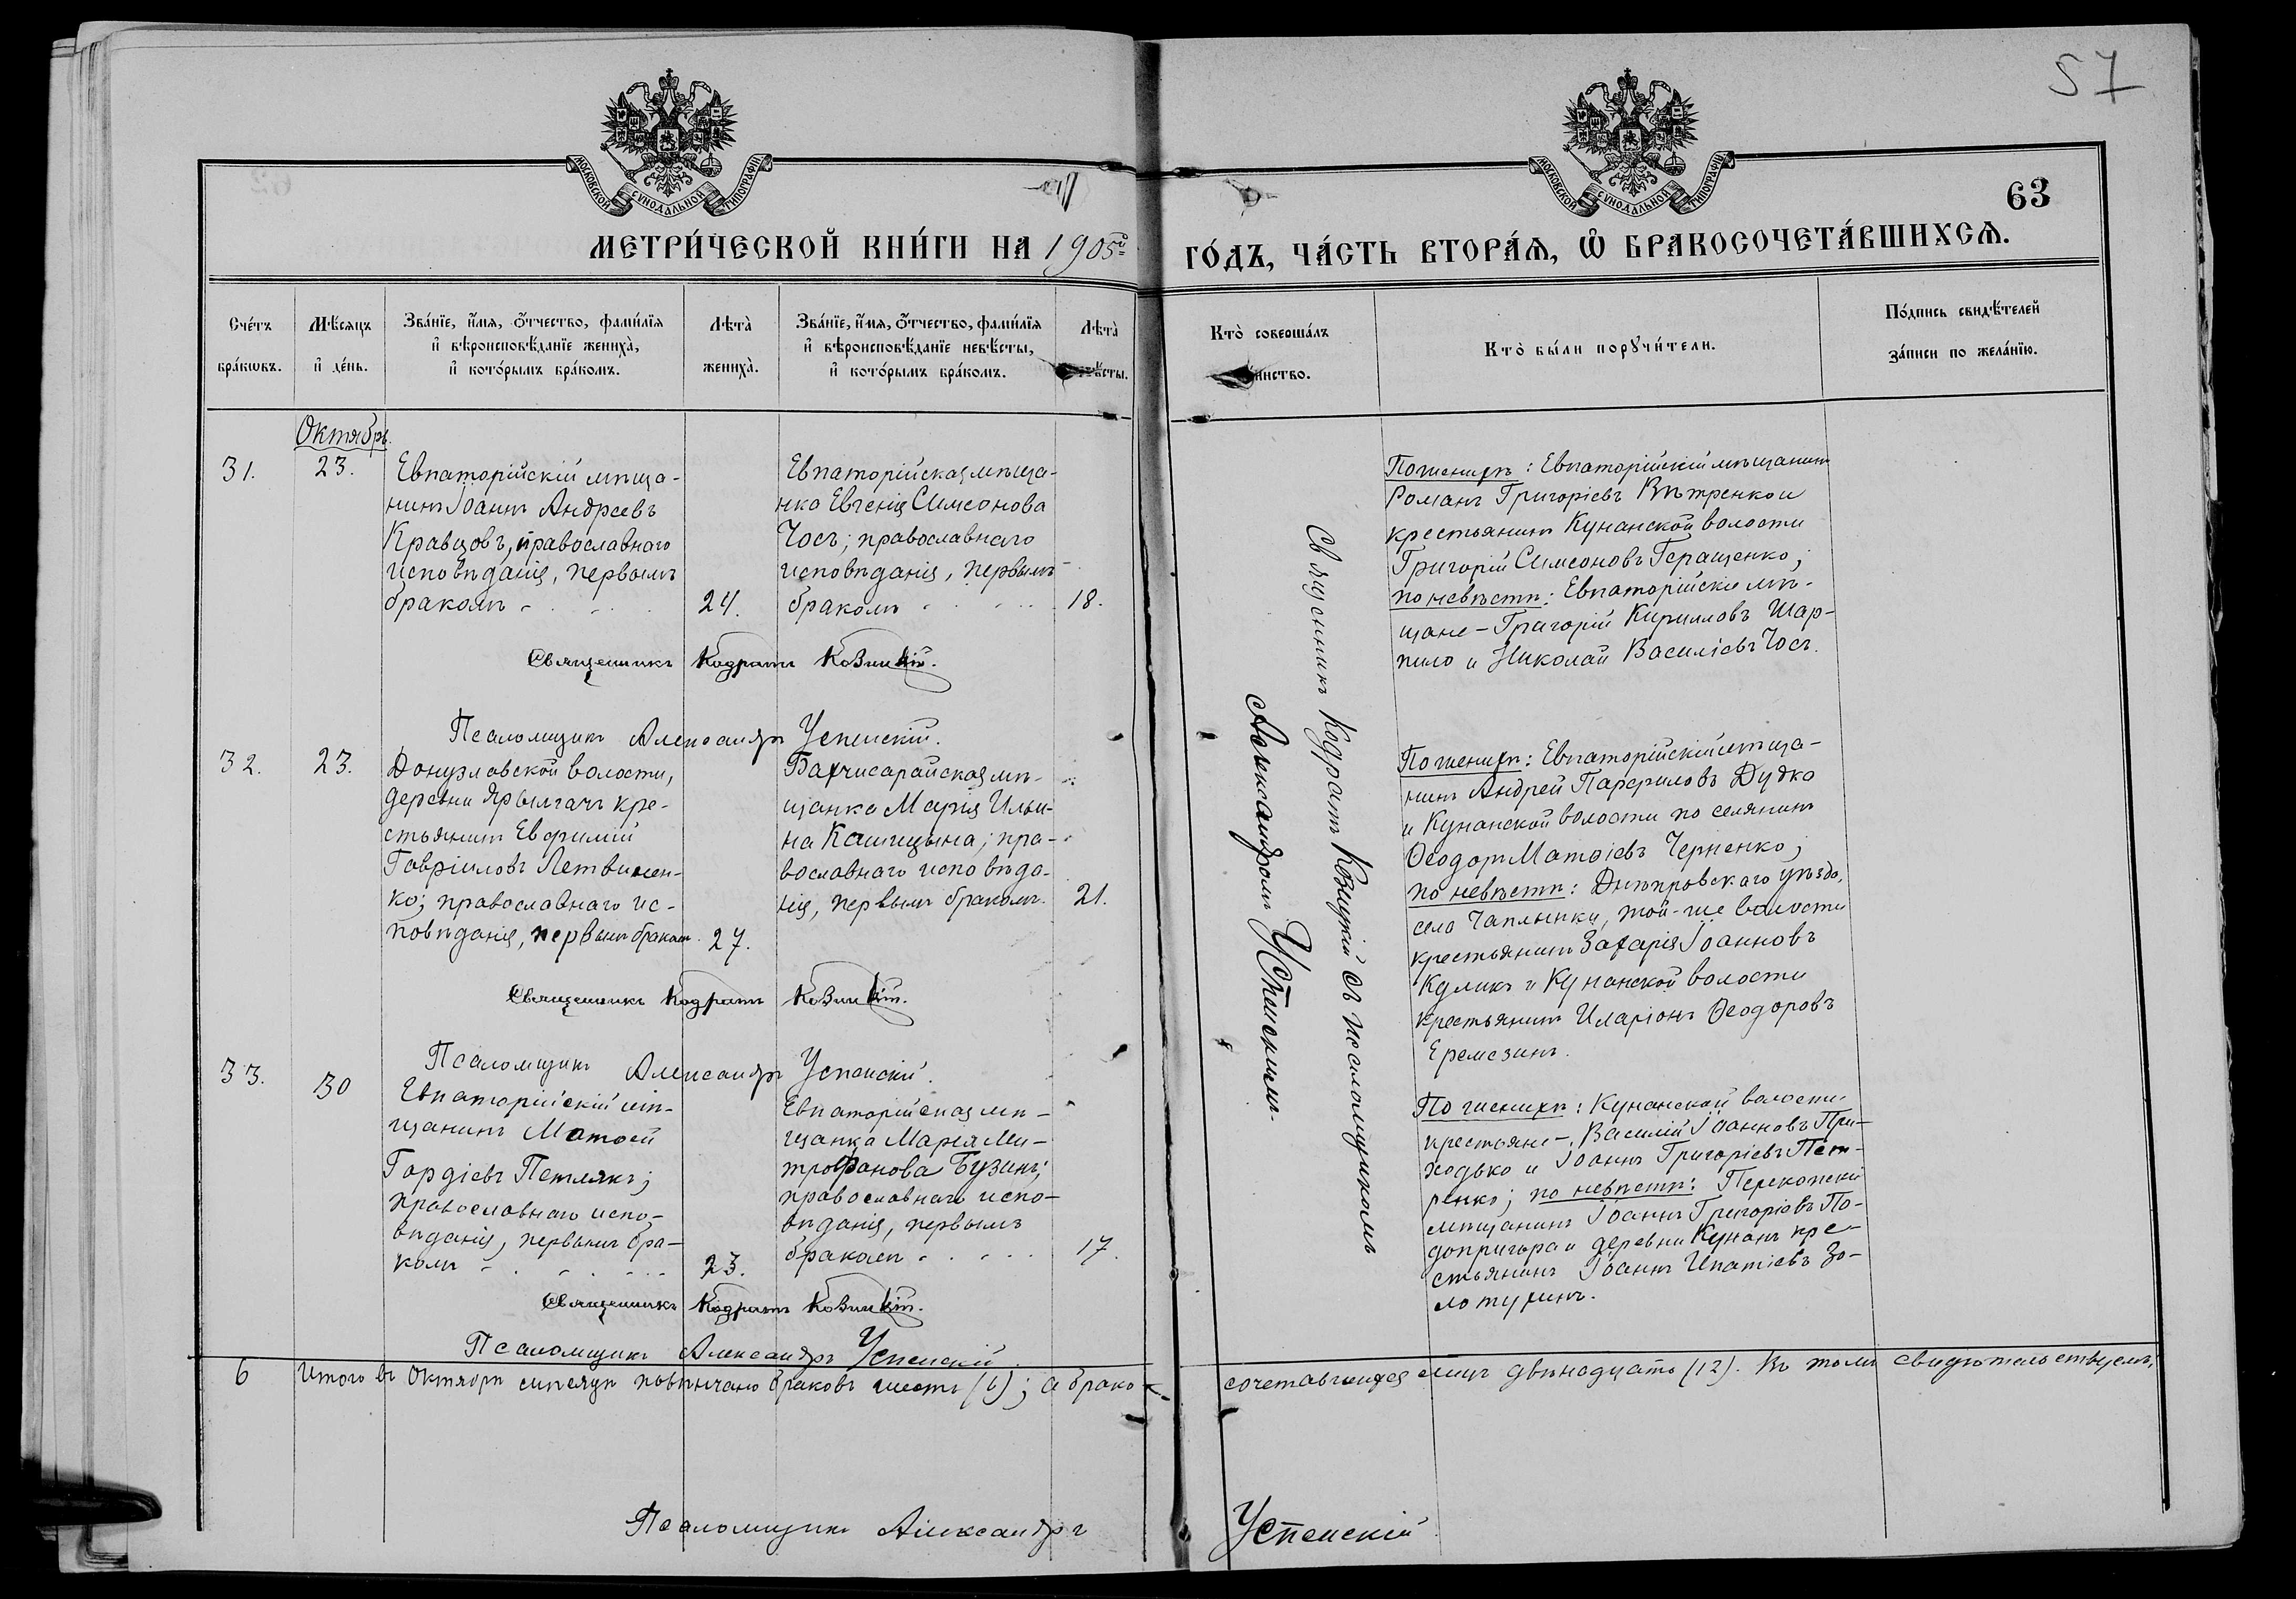 57
63
МОСКОВСКОЙ СУНОДАЛЬНОЙ ТИПОГРАФІИ
МОСКОВСКОЙ СУНОДАЛЬНОЙ ТИПОГРАФІИ
МЕТРИ́ЧЕСКОЙ КНИ́ГИ НА 1905й
ГО́ДЪ, ЧА́СТЬ ВТОРА́Я, Ѡ БРАКОСОЧЕТА́ВШИХСЯ.
Сче́тъ
бра́кѡвъ.
Мѣ́сяцъ
и҆ де́нь.
Зва́нїе, и҆́мя, ѻ҆́тчество, фами́лїя
и҆ вѣроисповѣ́данїе жениха̀,
и҆ кото́рымъ бра́комъ.
Лѣта̀
жениха̀.
Зва́нїе, и҆́мя, ѻ҆́тчество, фами́лїя
и҆ вѣроисповѣ́данїе невѣ́сты,
и҆ кото́рымъ бра́комъ.
Лѣта̀
Кто̀ соверша́лъ
Кто̀ бы́ли порꙋчи́тели.
По́дпись свидѣ́телей
за́писи по жела́нїю.
Октябрь.
31.
23.
Евпаторійскій мѣща-
нинъ Іоаннъ Андреевъ
Кравцовъ, православнаго
исповѣданія, первымъ
бракомъ
24.
Евпаторійская мѣща-
нка Евгенія Симеонова
Чосъ; православнаго
исповѣданія, первымъ
бракомъ
18.
По женихѣ: Евпаторійскій мѣщанинъ
Романъ Григоріевъ Вѣтренко и
крестьянинъ Кунанской волости
Григорій Симеоновъ Геращенко;
по невѣстѣ: Евпаторійскіе мѣ-
щане - Григорій Кирилловъ Шар-
пило и Николай Василіевъ Чосъ.
Священникъ Кодратъ Козицкій.
Псаломщикъ Александръ Успенскій.
32.
23.
Донузлавской волости,
деревни Ярылгачъ кре-
стьянинъ Евфимій
Гавріиловъ Летвинен-
ко; православнаго ис-
повѣданія, первымъ бракомъ.
27.
Бахчисарайская мѣ-
щанка Марія Ильи-
на Кашицына; пра-
вославнаго исповѣда-
нія, первымъ бракомъ.
21.
По женихѣ: Евпаторійскій мѣща-
нинъ Андрей Парфиловъ Дудка
и Кунанской волости поселянинъ
Ѳеодоръ Матѳіевъ Черненко;
по невѣстѣ: Днѣпровскаго уѣзда,
села Чаплынки, той-же волости
крестьянинъ Захарія Іоанновъ
Куликъ и Кунанской волости
крестьянинъ Иларіонъ Ѳеодоровъ
Еремезинъ.
Священникъ Кодратъ Козицкій.
Псаломщикъ Александръ Успенскій.
33.
30
Евпаторійскій мѣ-
щанинъ Матѳей
Гордіевъ Петлякъ;
православнаго испо-
вѣданія, первымъ бра-
комъ
23.
Евпаторійская мѣ-
щанка Марія Ми-
трофанова Бузинъ;
православнаго испо-
вѣданія, первымъ
бракомъ
17.
По женихѣ: Кунанской волости
крестьяне - Василій Іоанновъ При-
ходько и Іоаннъ Григоріевъ Пет-
ренко; по невѣстѣ: Перекопскій
мѣщанинъ Іоаннъ Григоріевъ По-
допригора и деревни Кунанъ кре-
стьянинъ Іоаннъ Ипатіевъ Зо-
лотухинъ.
Священникъ Кодратъ Козицкій.
Псаломщикъ Александръ Успенскій.
Священникъ Кодратъ Козицкій съ псаломщикомъ
Александромъ Успенскимъ.
6 Итого въ Октябрѣ мѣсяцѣ повѣнчано браковъ шесть (6); а брако-
сочетавшихся лицъ двѣнадцать (12). Въ томъ свидѣтельствуемъ:
Псаломщикъ Александръ Успенскій